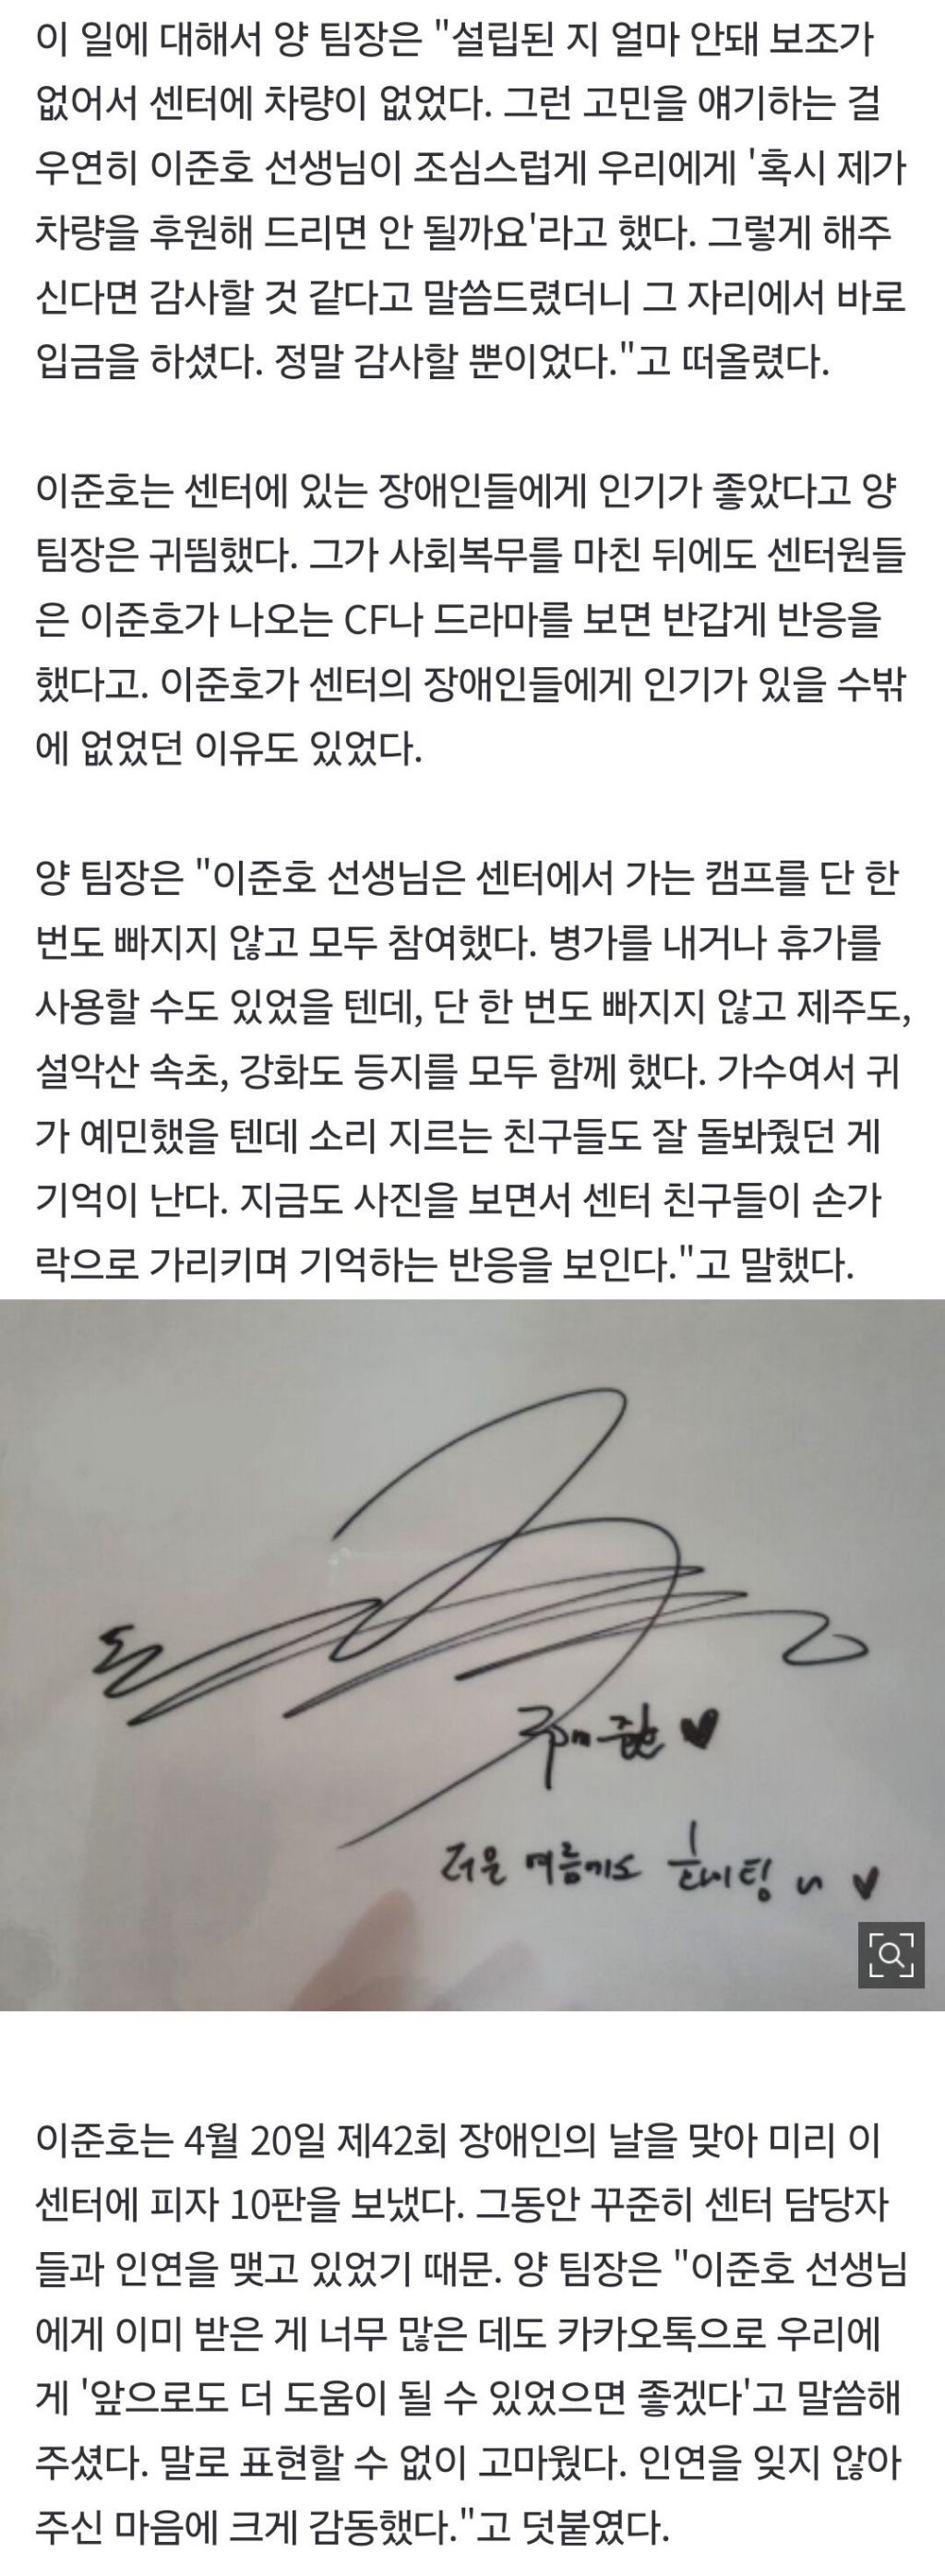 이 일에 대해서 양 팀장은 "설립된 지 얼마 안돼 보조가
없어서 센터에 차량이 없었다. 그런 고민을 얘기하는 걸
우연히 이준호 선생님이 조심스럽게 우리에게 '혹시 제가
차량을 후원해 드리면 안 될까요'라고 했다. 그렇게 해주
신다면 감사할 것 같다고 말씀드렸더니 그 자리에서 바로
입금을 하셨다. 정말 감사할 뿐이었다."고 떠올렸다.
이준호는 센터에 있는 장애인들에게 인기가 좋았다고 양
팀장은 귀띔했다. 그가 사회복무를 마친 뒤에도 센터원들
은 이준호가 나오는 CF나 드라마를 보면 반갑게 반응을
했다고. 이준호가 센터의 장애인들에게 인기가 있을 수밖
에 없었던 이유도 있었다.
양 팀장은 "이준호 선생님은 센터에서 가는 캠프를 단 한
번도 빠지지 않고 모두 참여했다. 병가를 내거나 휴가를
사용할 수도 있었을 텐데, 단 한 번도 빠지지 않고 제주도,
설악산 속초, 강화도 등지를 모두 함께 했다. 가수여서 귀
가 예민했을 텐데 소리 지르는 친구들도 잘 돌봐줬던 게
기억이 난다. 지금도 사진을 보면서 센터 친구들이 손가
락으로 가리키며 기억하는 반응을 보인다."고 말했다.
더운 여름에도 화이팅 ~ ♥
이준호는 4월 20일 제42회 장애인의 날을 맞아 미리 이
센터에 피자 10판을 보냈다. 그동안 꾸준히 센터 담당자
들과 인연을 맺고 있었기 때문. 양 팀장은 "이준호 선생님
에게 이미 받은 게 너무 많은 데도 카카오톡으로 우리에
게 '앞으로도 더 도움이 될 수 있었으면 좋겠다'고 말씀해
주셨다. 말로 표현할 수 없이 고마웠다. 인연을 잊지 않아
주신 마음에 크게 감동했다."고 덧붙였다.